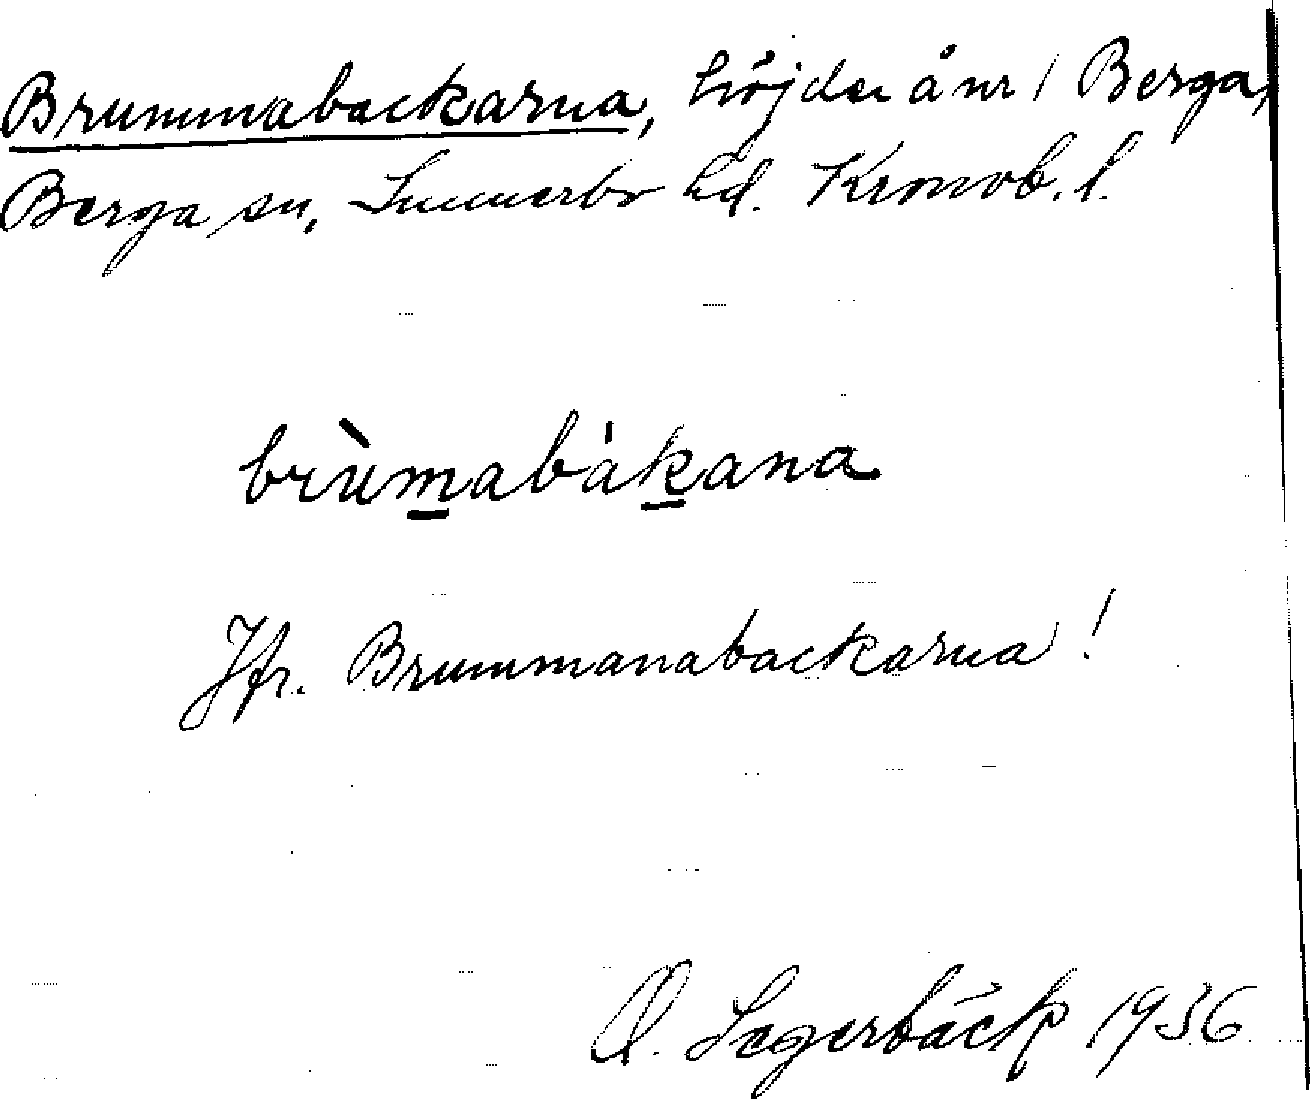 Brummabackarna, höjder å nr 1 Berga,
Berga sn, Sunnerbo hd. Kronob. l.
brùmabákana
Jfr. Brummanabackarna!
O. Segerbäck 1936